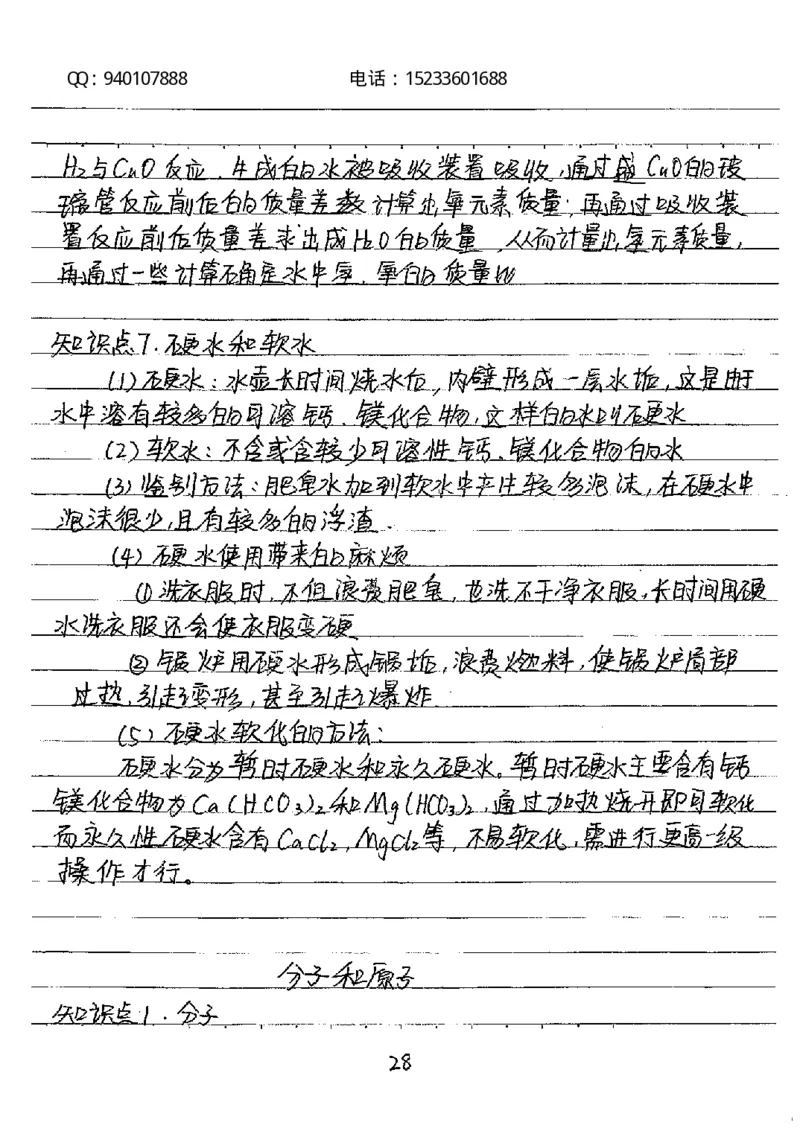 QQ：940107888 电话：15233601688
H₂与CuO反应，生成的水被吸收装置吸收，通过盛CuO的玻
璃管反应前后的质量差数计算出氧元素质量；再通过吸收装
置反应前后质量差求出成H₂O的质量，从而计量出氢元素质量，
再通过一些计算确定水中氢、氧的质量比
知识点7.硬水和软水
(1)硬水：水壶长时间烧水后，内壁形成一层水垢，这是由于
水中溶有较多的可溶钙、镁化合物，这样的水叫硬水
(2)软水：不含或含较少可溶性钙、镁化合物的水
(3)鉴别方法：肥皂水加到软水中产生较多泡沫，在硬水中
泡沫很少，且有较多的浮渣．
(4)硬水使用带来的麻烦
①洗衣服时，不但浪费肥皂，也洗不干净衣服，长时间用硬
水洗衣服还会使衣服变硬
②锅炉用硬水形成锅垢，浪费燃料，使锅炉局部
过热，引起变形，甚至引起爆炸
(5)硬水软化的方法：
硬水分为暂时硬水和永久硬水。暂时硬水主要含有钙
镁化合物为Ca(HCO₃)₂和Mg(HCO₃)₂，通过加热烧开即可软化
而永久性硬水含有CaCl₂，MgCl₂等，不易软化，需进行更高一级
操作才行。
分子和原子
知识点1．分子
28